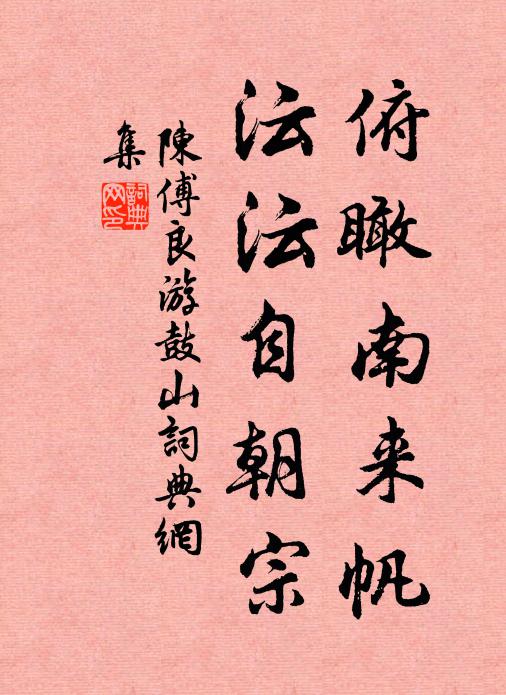 俯瞰南来帆
沄沄自朝宗
陳傅良游鼓山詞典網
集
詞典
网印